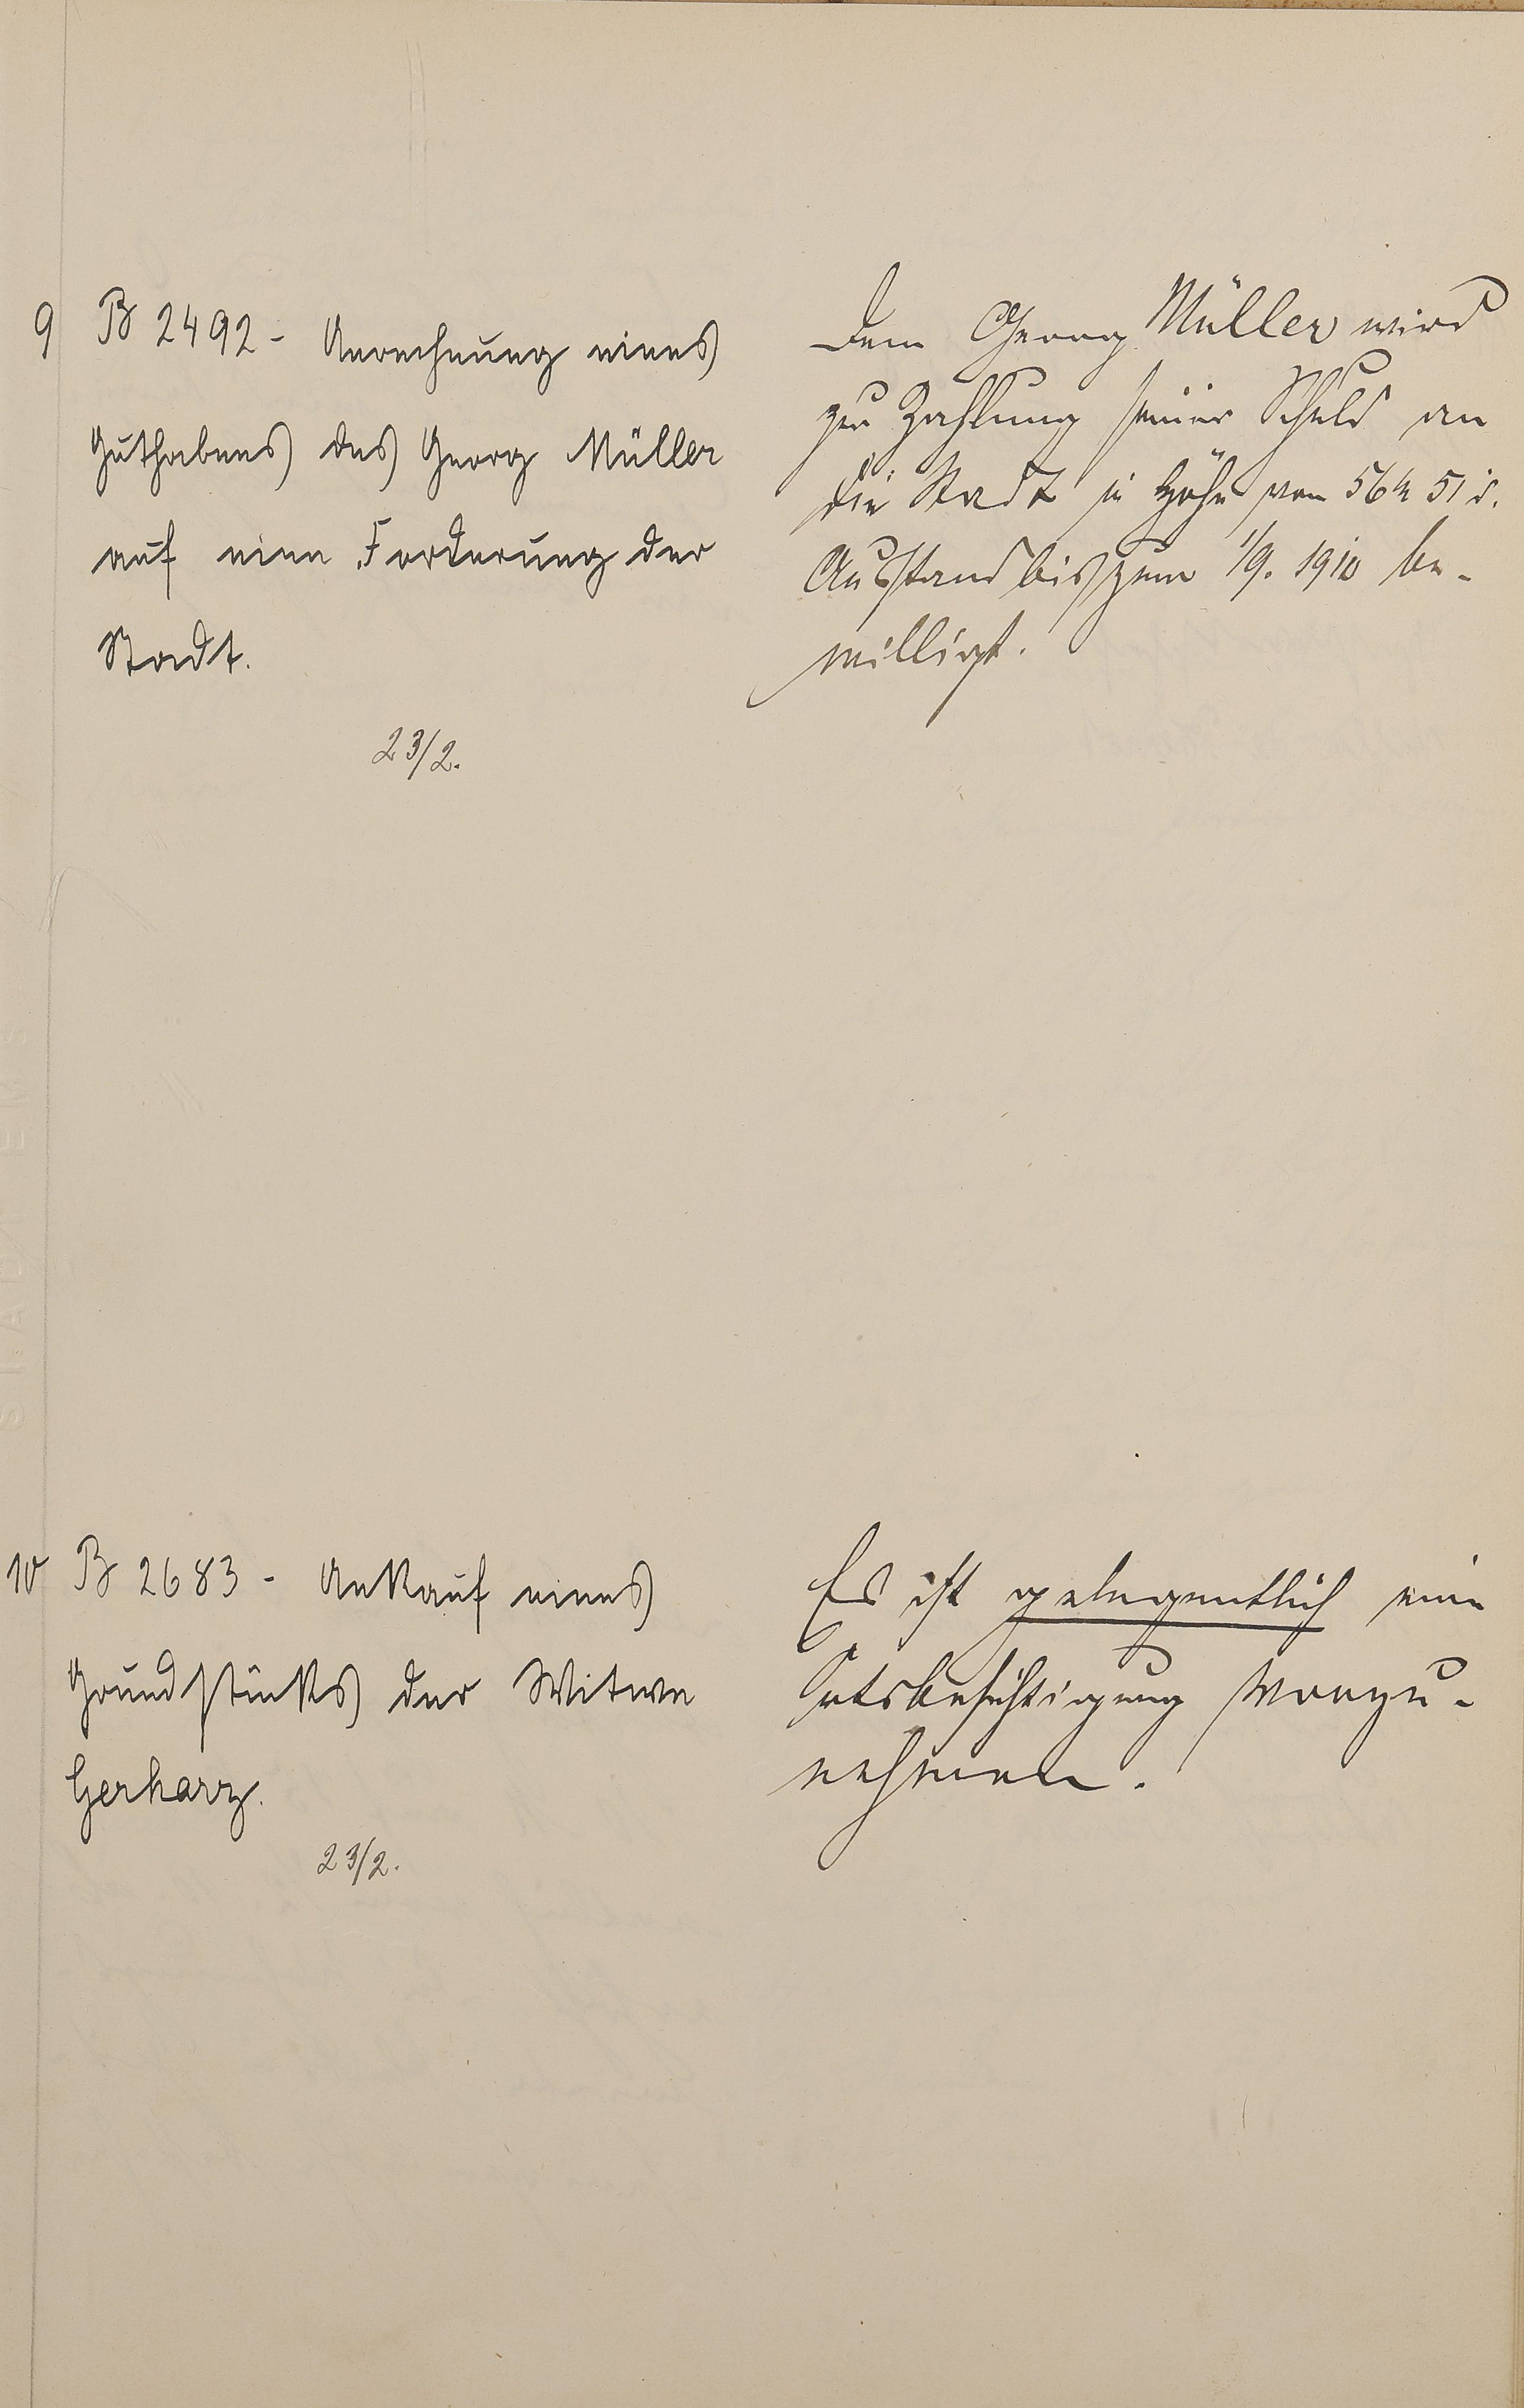 9 B 2492 - Anrechnung eines
Guthabens des Georg Müller
auf eine Forderung der
Stadt.
23/2.
Dem Georg Müller wird
zur Zahlung seiner Schuld an
die Stadt in Höhe von 56 M 51 d.
Ausstand bis zum 1/9. 1910 be-
willigt.
10 B 2683 - Ankauf eines
Grundstücks der Witwe
Gerharz.
23/2.
Es ist gelegentlich eine
Ortsbesichtigung vorzu-
nehmen.